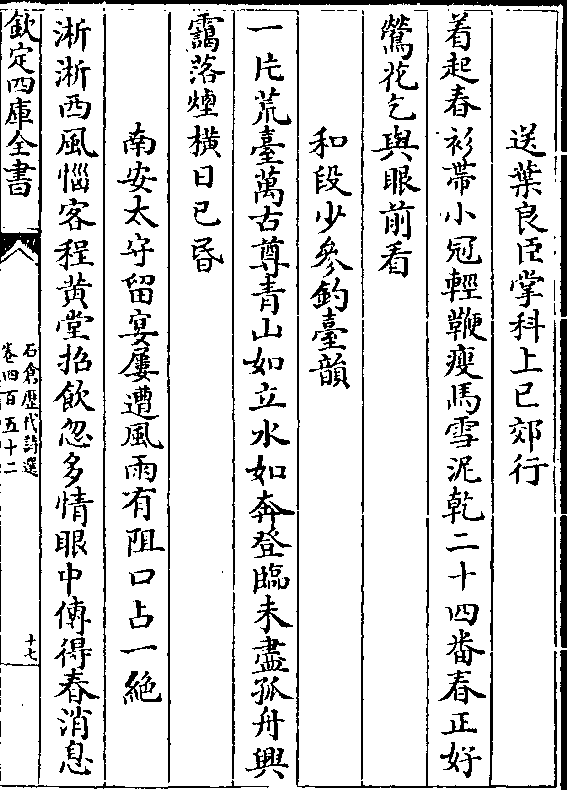 送葉良臣掌科上巳郊行
着起春衫帶小冠輕鞭瘦馬雪泥乾二十四番春正好
鶯花乞與眼前看
和段少參釣臺韻
一片荒臺萬古尊青山如立水如奔登臨未盡孤舟興
靄落煙橫日已昏
南安太守留宴屢遭風雨有阻口占一絶
淅淅西風惱客程黄堂招飲忽多情眼中傳得春消息
欽定四庫全書
石倉歴代詩選
卷四百五十二
十七